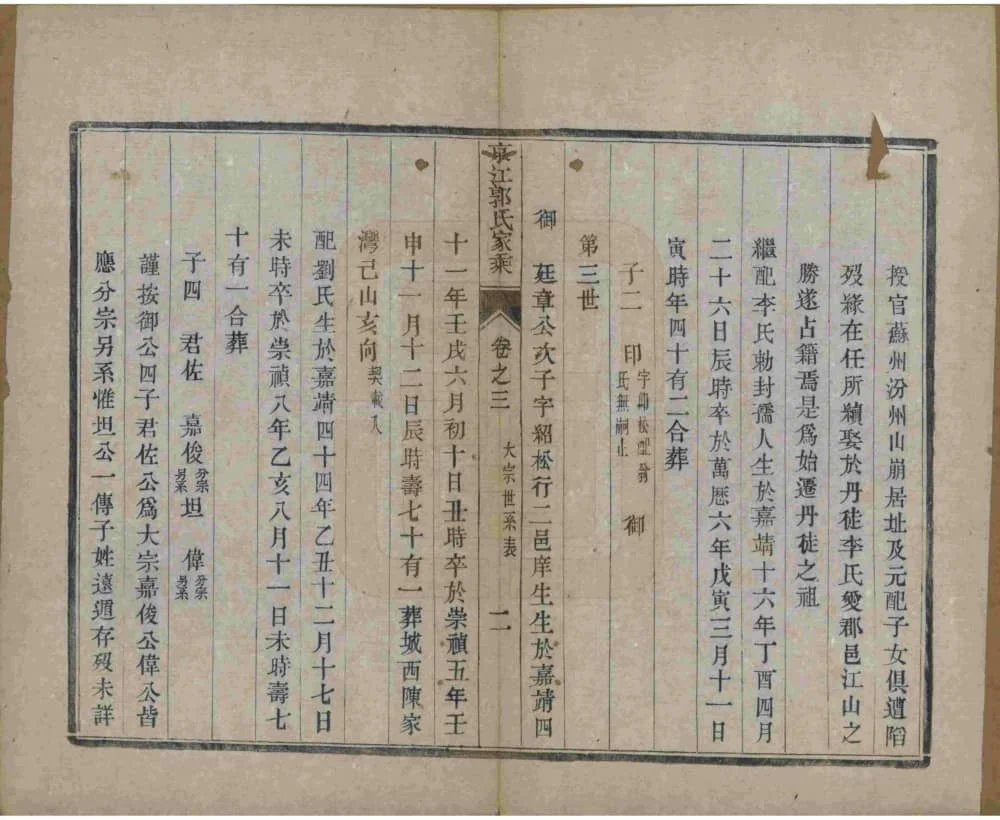 授官蘇州汾州山崩居址及元配子女俱遭陷
歿緣在任所續娶於丹徒李氏愛郡邑江山之
勝遂占籍焉是爲始遷丹徒之祖
繼配李氏勅封孺人生於嘉靖十六年丁酉四月
二十六日辰時卒於萬歷六年戊寅三月十一日
寅時年四十有二合葬
子二 印 字仰松配翁氏無嗣止 御
第三世
御 廷章公次子字紹松行二邑庠生生於嘉靖四
京江郭氏家乘 卷之三 大宗世系表 二
十一年壬戌六月初十日丑時卒於崇禎五年壬
申十一月十二日辰時壽七十有一葬城西陳家
灣己山亥向 契載入
配劉氏生於嘉靖四十四年乙丑十二月十七日
未時卒於崇禎八年乙亥八月十一日未時壽七
十有一合葬
子四 君佐 嘉俊 分宗另系 坦 偉 分宗另系
謹按御公四子君佐公爲大宗嘉俊公偉公皆
應分宗另系惟坦公一傳子姓遠逈存歿未詳